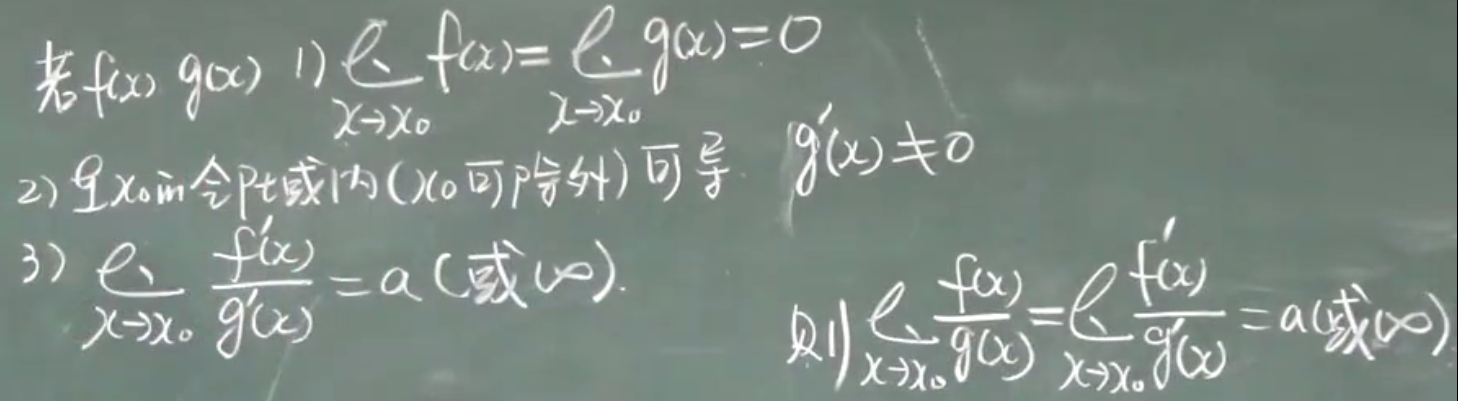 若f(x) g(x) 1) lim_{x→x₀} f(x) = lim_{x→x₀} g(x) = 0
2) 在x₀的邻域内(x₀可除外)可导. g′(x) ≠ 0
3) lim_{x→x₀} f′(x)/g′(x) = a (或∞).
则 lim_{x→x₀} f(x)/g(x) = lim_{x→x₀} f′(x)/g′(x) = a(或∞)